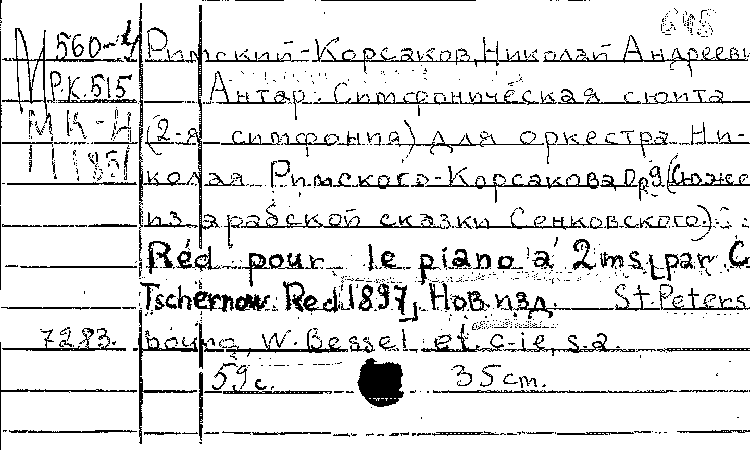 645
М 560-4 Римский-Корсаков, Николай Андрееви
Р.К.515 Антар. Симфоническая сюита
М К-Н (2-я симфония) для оркестра Ни-
185 колая Римского-Корсакова, Op 9 (Сюже
из арабской сказки Сенковского).
Réd pour le piano à 2ms par C
Tschernow. Red 1897, Нов изд. St. Peters
7283. bourg, W. Bessel et C-ie, s.a.
59 с. 35 cm.